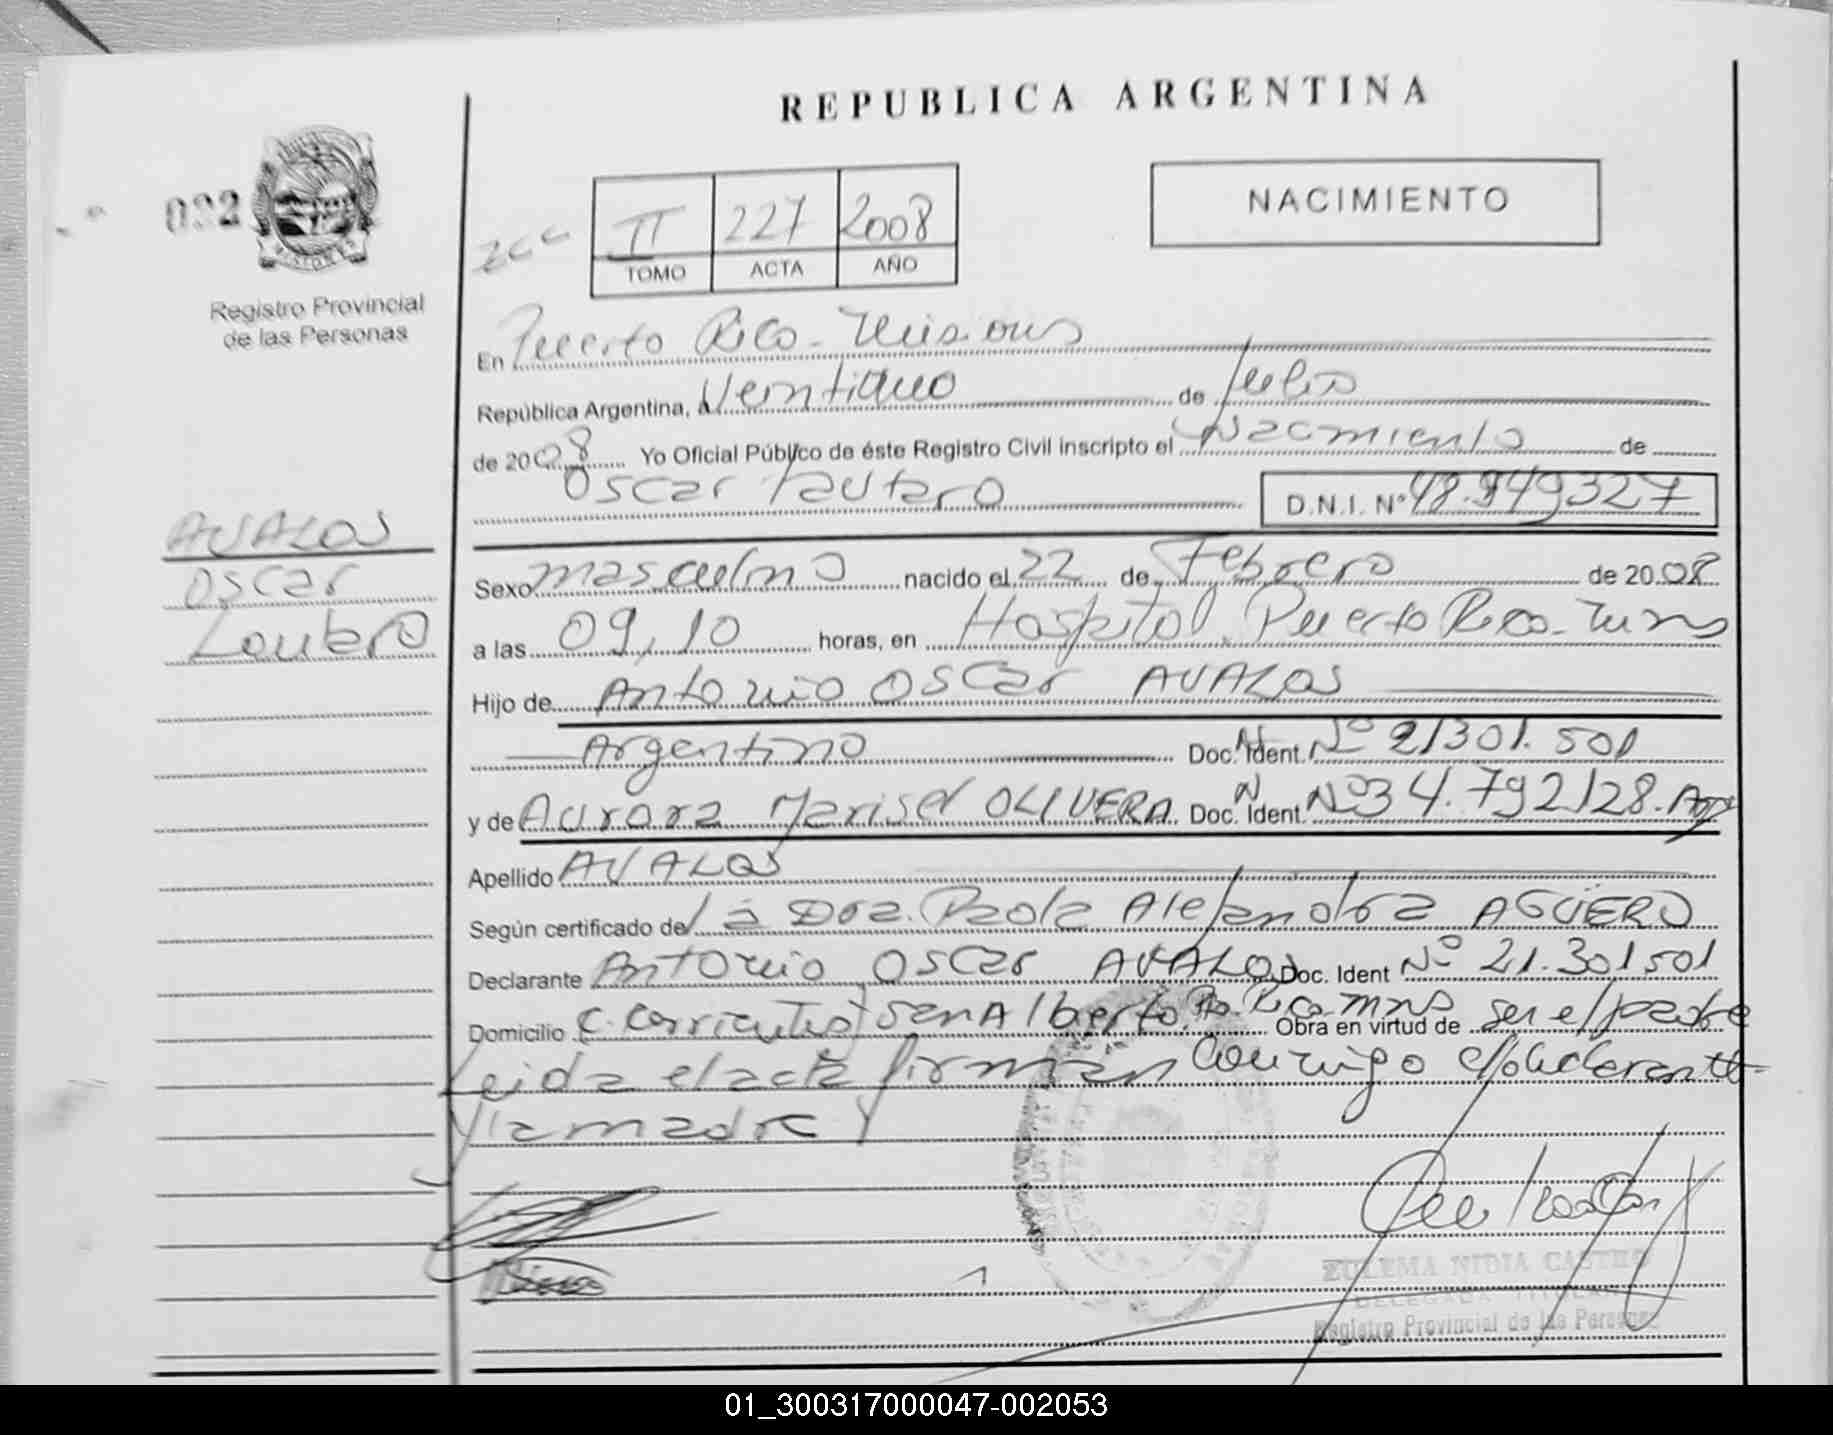 REPUBLICA ARGENTINA
092
Registro Provincial
de las Personas
II 227 2008
TOMO ACTA AÑO
NACIMIENTO
En Puerto Rico - Misiones
República Argentina, a Veintiuno de Julio
de 2008 Yo Oficial Público de éste Registro Civil inscripto el Nacimiento de
Oscar Lautaro D.N.I. Nº 48.949327
AVALOS
Oscar
Lautaro
Sexo masculino nacido el 22 de Febrero de 2008
a las 09,10 horas, en Hospital Puerto Rico - Mnes
Hijo de Antonio Oscar AVALOS
Argentino Doc. N. Ident. Nº 21301.501
y de Aurora Marisel OLIVERA Doc. N. Ident. Nº 34.792128. Arg
Apellido AVALOS
Según certificado de la Dra. Paola Alejandra AGÜERO
Declarante Antonio Oscar AVALOS Doc. Ident Nº 21.301501
Domicilio C. Corrientes San Alberto Pto. Rico mns Obra en virtud de ser el padre
Leida el acta firman conmigo el declarante
y la madre
ZULEMA NIDIA CASTRO
DELEGADA TITULAR
Registro Provincial de las Personas
01_300317000047-002053